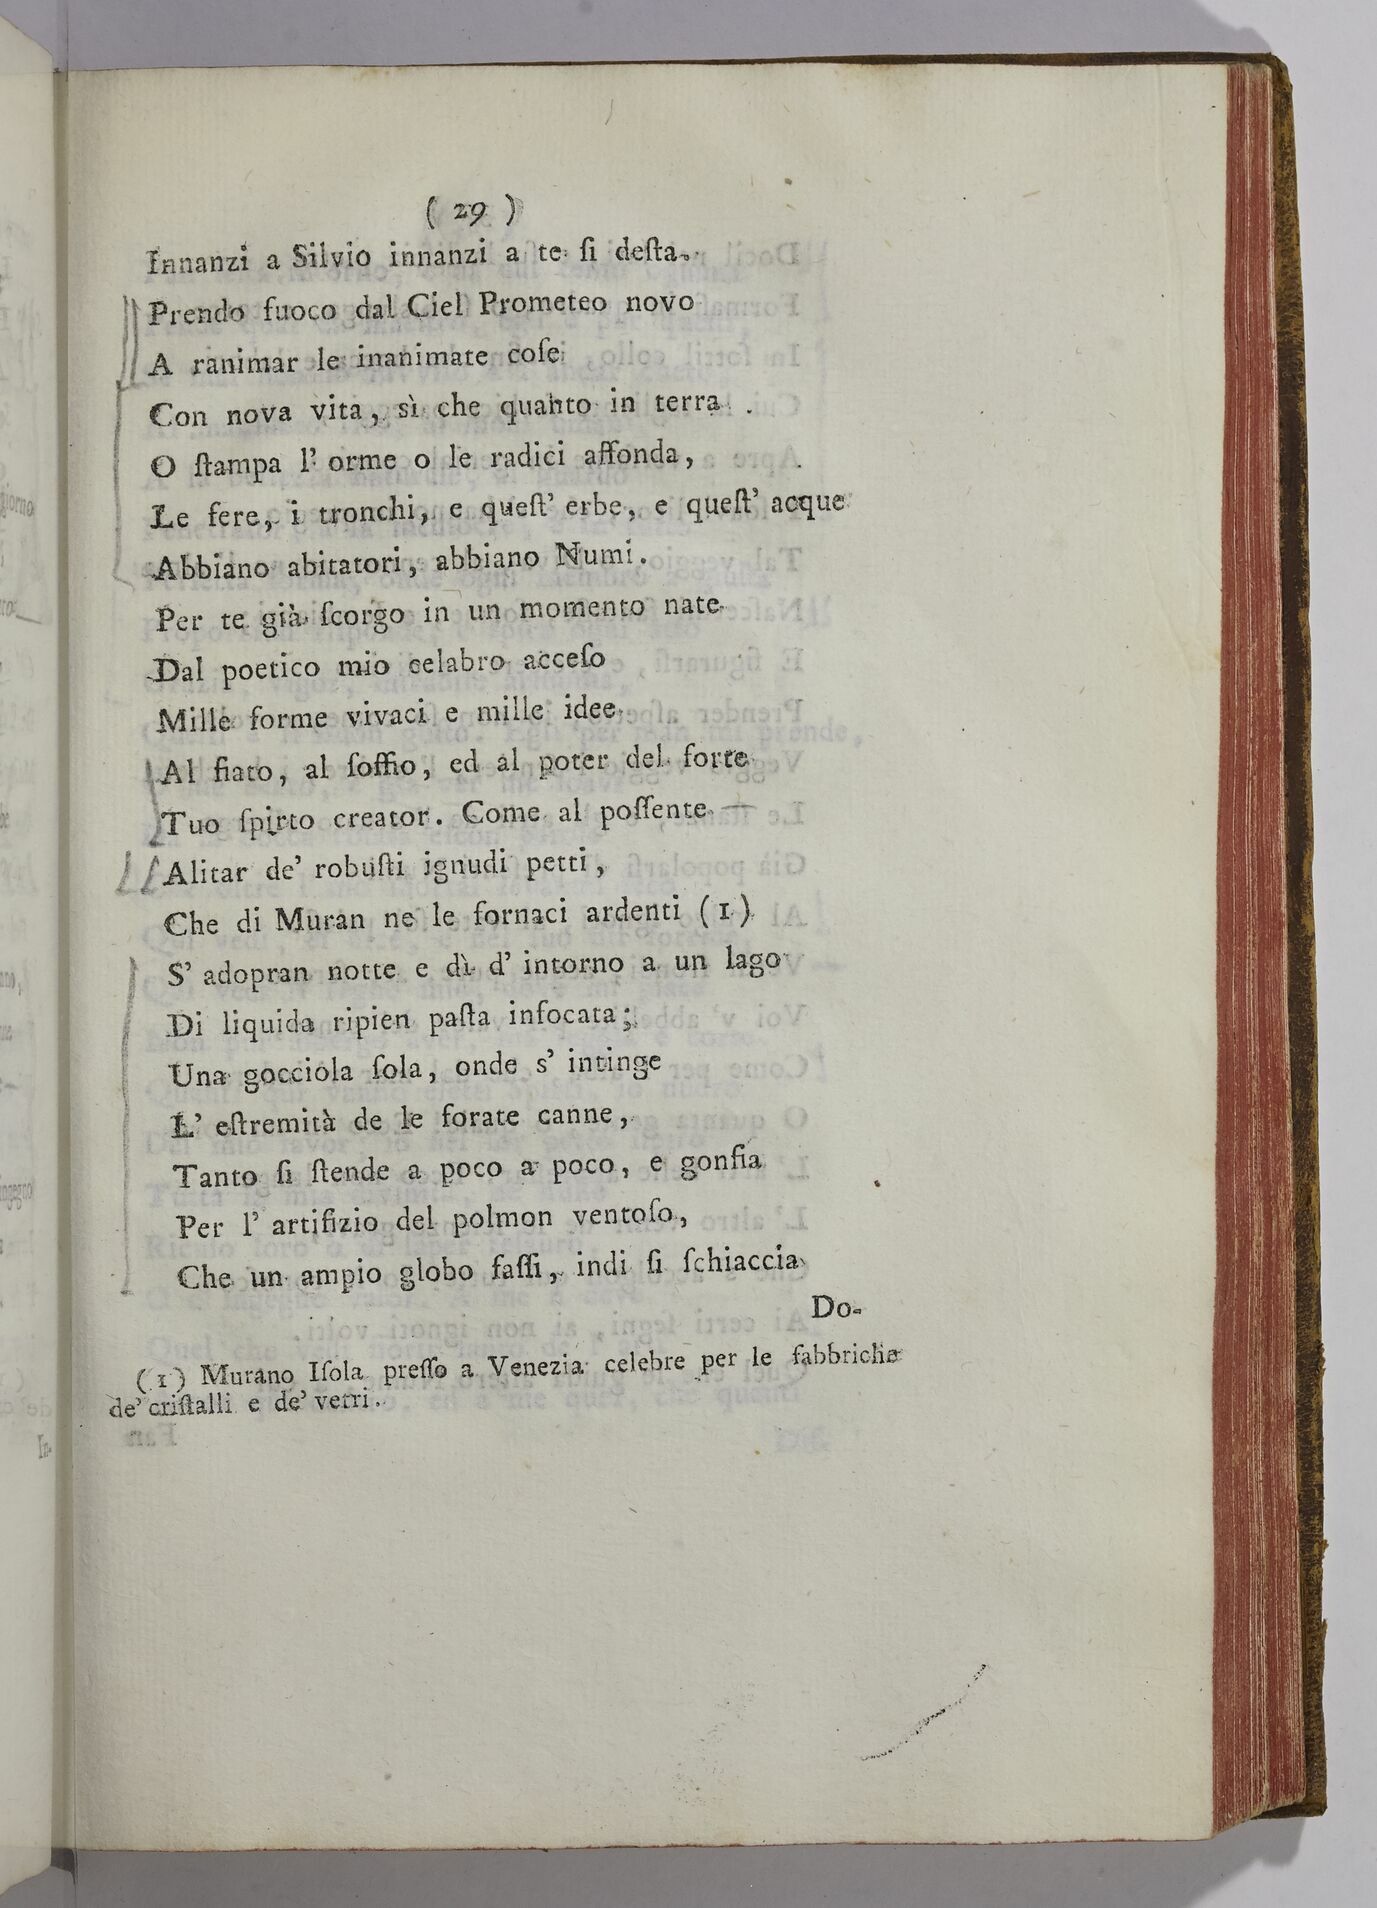 ( 29 )
Innanzi a Silvio innanzi a te ſi deſta.
Prendo fuoco dal Ciel Prometeo novo
A ranimar le inanimate coſe
Con nova vita, sì che quanto in terra
O ſtampa l' orme o le radici affonda,
Le fere, i tronchi, e queſt' erbe, e queſt' acque
Abbiano abitatori, abbiano Numi.
Per te già ſcorgo in un momento nate
Dal poetico mio celabro acceſo
Mille forme vivaci e mille idee
Al fiato, al ſoffio, ed al poter del forte
Tuo ſpirto creator. Come al poſſente
Alitar de' robuſti ignudi petti,
Che di Muran ne le fornaci ardenti (1)
S' adopran notte e dì d' intorno a un lago
Di liquida ripien paſta infocata;
Una gocciola ſola, onde s' intinge
L' eſtremità de le forate canne,
Tanto ſi ſtende a poco a poco, e gonfia
Per l' artifizio del polmon ventoſo,
Che un ampio globo faſſi, indi ſi ſchiaccia
Do-
(1) Murano Iſola preſſo a Venezia celebre per le fabbriche
de' criſtalli e de' vetri.